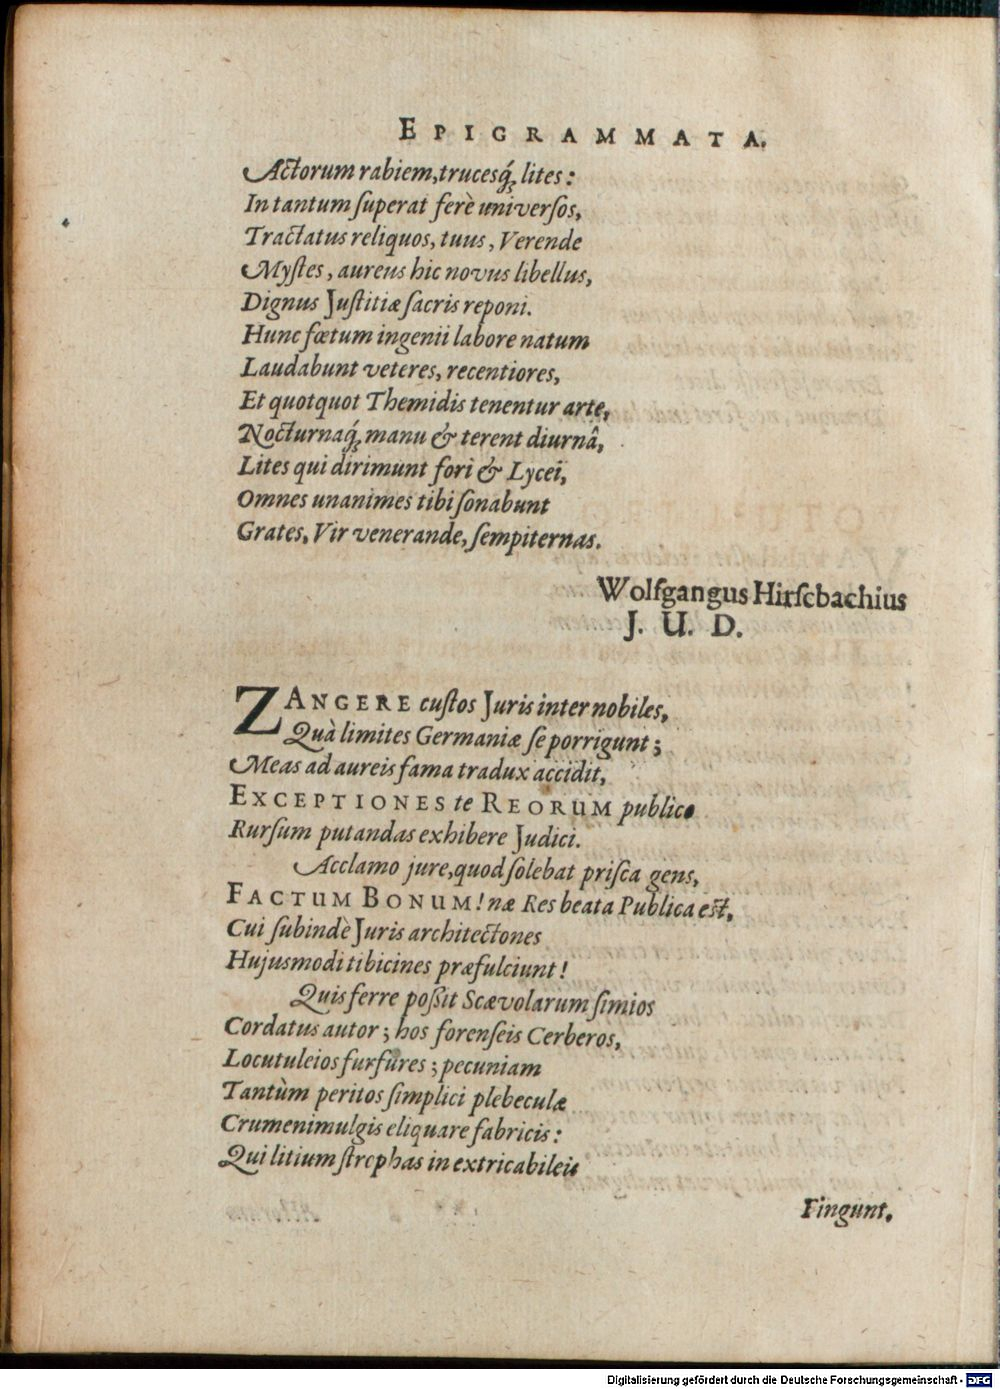 EPIGRAMMATA.
Actorum rabiem, trucesq́; lites:
In tantum ſuperat ferè univerſos,
Tractatus reliquos, tuus, Verende
Myſtes, aureus hic novus libellus,
Dignus Juſtitiæ ſacris reponi.
Hunc fœtum ingenii labore natum
Laudabunt veteres, recentiores,
Et quotquot Themidis tenentur arte,
Nocturnaq́; manu & terent diurnâ,
Lites qui dirimunt fori & Lycei,
Omnes unanimes tibi ſonabunt
Grates, Vir venerande, ſempiternas.
Wolfgangus Hirſcbachius
J. U. D.
ZANGERE cuſtos Juris inter nobiles,
Quà limites Germaniæ ſe porrigunt;
Meas ad aureis fama tradux accidit,
EXCEPTIONES te REORUM publico
Rurſum putandas exhibere Judici.
Acclamo jure, quod ſolebat priſca gens,
FACTUM BONUM! næ Res beata Publica eſt,
Cui ſubindè Juris architectones
Hujusmodi tibicines præfulciunt!
Quis ferre poſſit Scævolarum ſimios
Cordatus autor; hos forenſeis Cerberos,
Locutuleios furfures; pecuniam
Tantùm peritos ſimplici plebeculæ
Crumenimulgis eliquare fabricis:
Qui litium ſtrophas inextricabileis
Fingunt,
Digitalisierung gefördert durch die Deutsche Forschungsgemeinschaft - DFG